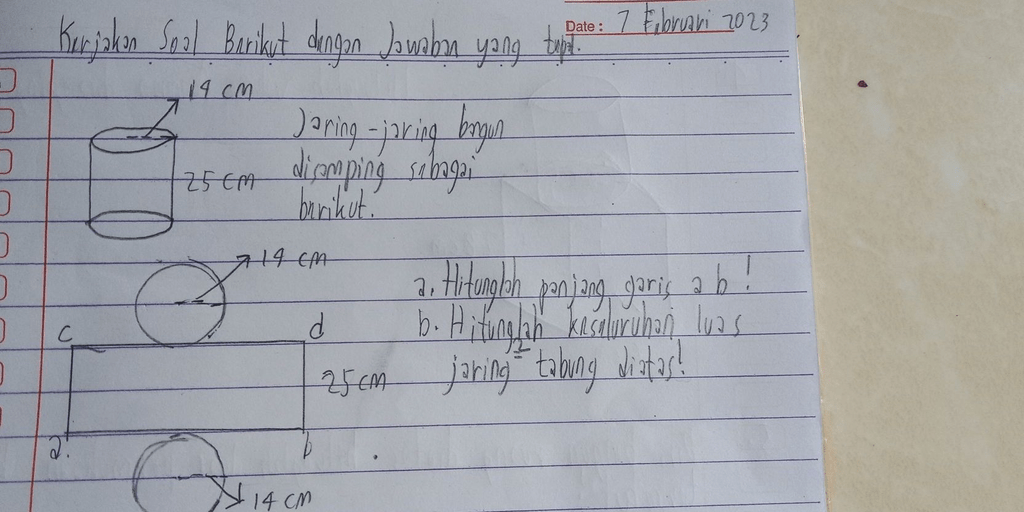 Date: 7 Februari 2023
Kerjakan Soal Berikut dengan Jawaban yang tepat.
14 cm
25 cm
Jaring-jaring bagun
disamping sebagai
berikut.
14 cm
c d
25 cm
a. b
14 cm
a. Hitunglah panjang garis a b!
b. Hitunglah keseluruhan luas
jaring² tabung diatas!